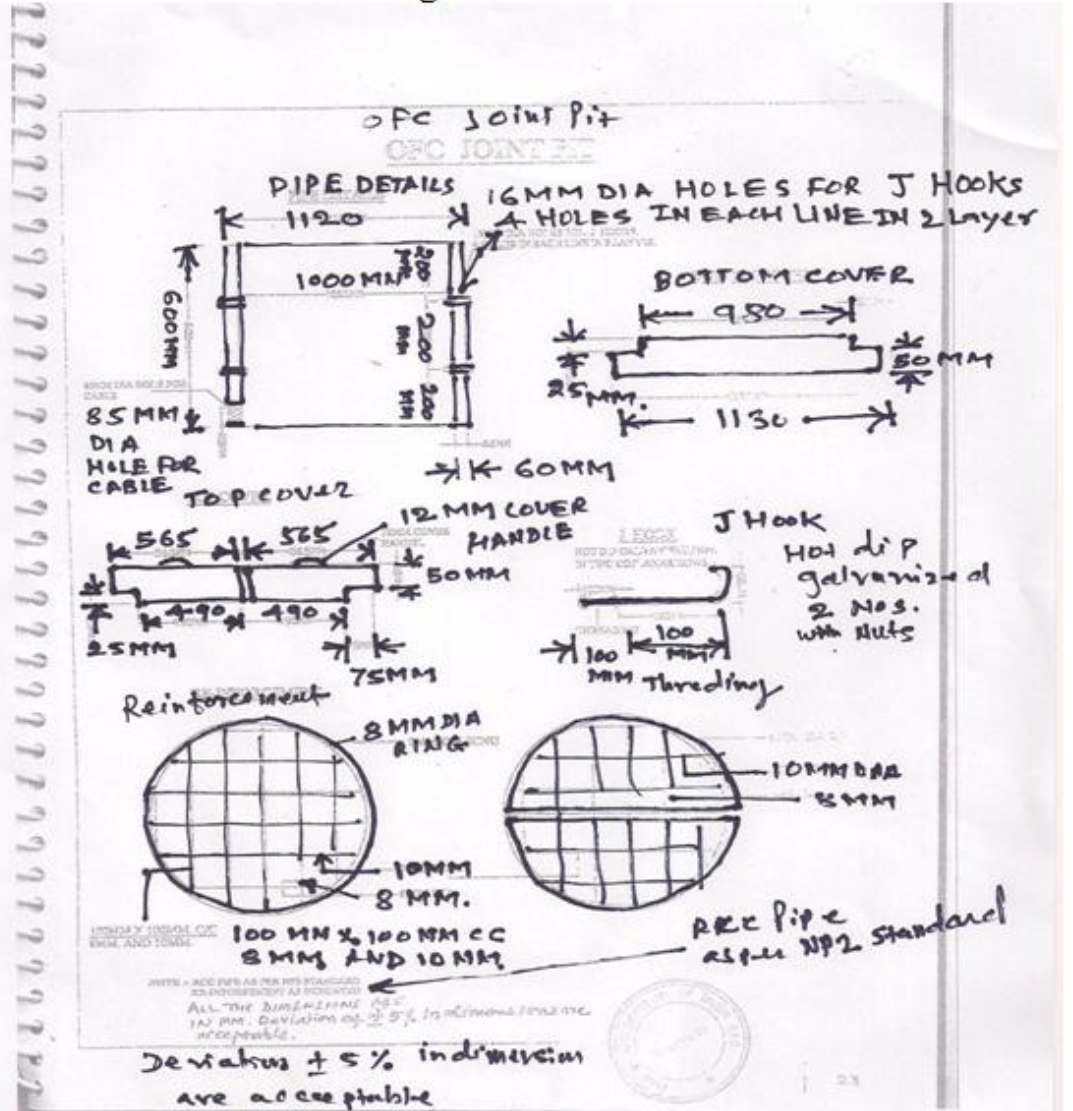 OFC Joint Pit
OFC JOINT PIT
PIPE DETAILS
16MM DIA HOLES FOR J HOOKS
4 HOLES IN EACH LINE IN 2 Layer
1120
1000 MM
200 MM
200 MM
200 MM
600 MM
85 MM
DIA
HOLE FOR
CABLE
60MM
BOTTOM COVER
980
25 MM.
50 MM
1130
TOP COVER
12 MM COVER
HANDLE
565
565
50MM
490
490
25MM
75MM
J Hook
Hot dip
galvanized
2 Nos.
with Nuts
100 MM
100 MM
Threding
Reinforcement
8 MM DIA
RING
10MM
8 MM.
100 MM X 100MM CC
8MM AND 10 MM
10MM
8MM
RCC Pipe
as per NP2 Standard
ALL THE DIMENSIONS ARE
IN MM. Deviation of ± 5% in dimensions are
acceptable.
Deviation ± 5% indimersion
are acceptable
23